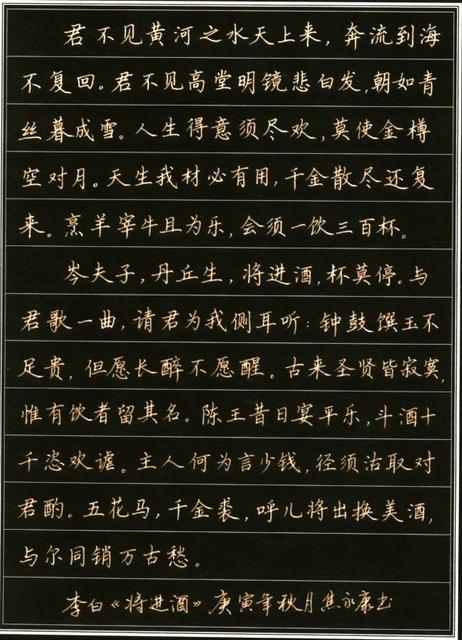 君不见黄河之水天上来，奔流到海
不复回。君不见高堂明镜悲白发，朝如青
丝暮成雪。人生得意须尽欢，莫使金樽
空对月。天生我材必有用，千金散尽还复
来。烹羊宰牛且为乐，会须一饮三百杯。
岑夫子，丹丘生，将进酒，杯莫停。与
君歌一曲，请君为我侧耳听：钟鼓馔玉不
足贵，但愿长醉不愿醒。古来圣贤皆寂寞，
惟有饮者留其名。陈王昔日宴平乐，斗酒十
千恣欢谑。主人何为言少钱，径须沽取对
君酌。五花马，千金裘，呼儿将出换美酒，
与尔同销万古愁。
李白《将进酒》庚寅年秋月焦永康书